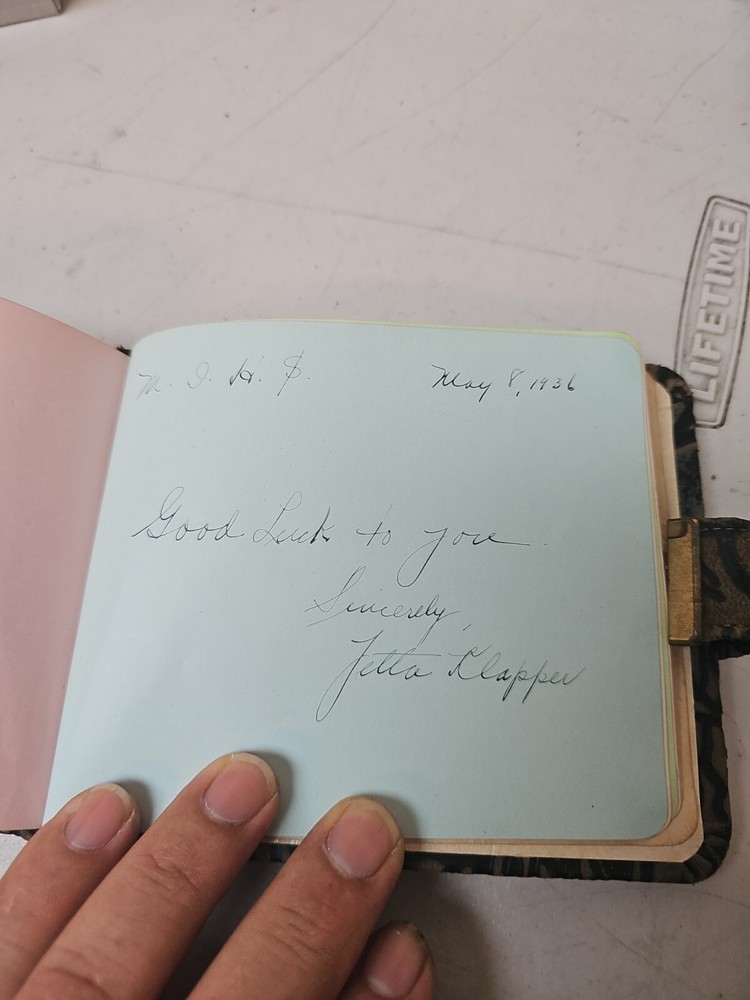 LIFETIME
M. I. H. S.
May 8, 1936
Good Luck to you
Sincerely,
Jetta Klapper